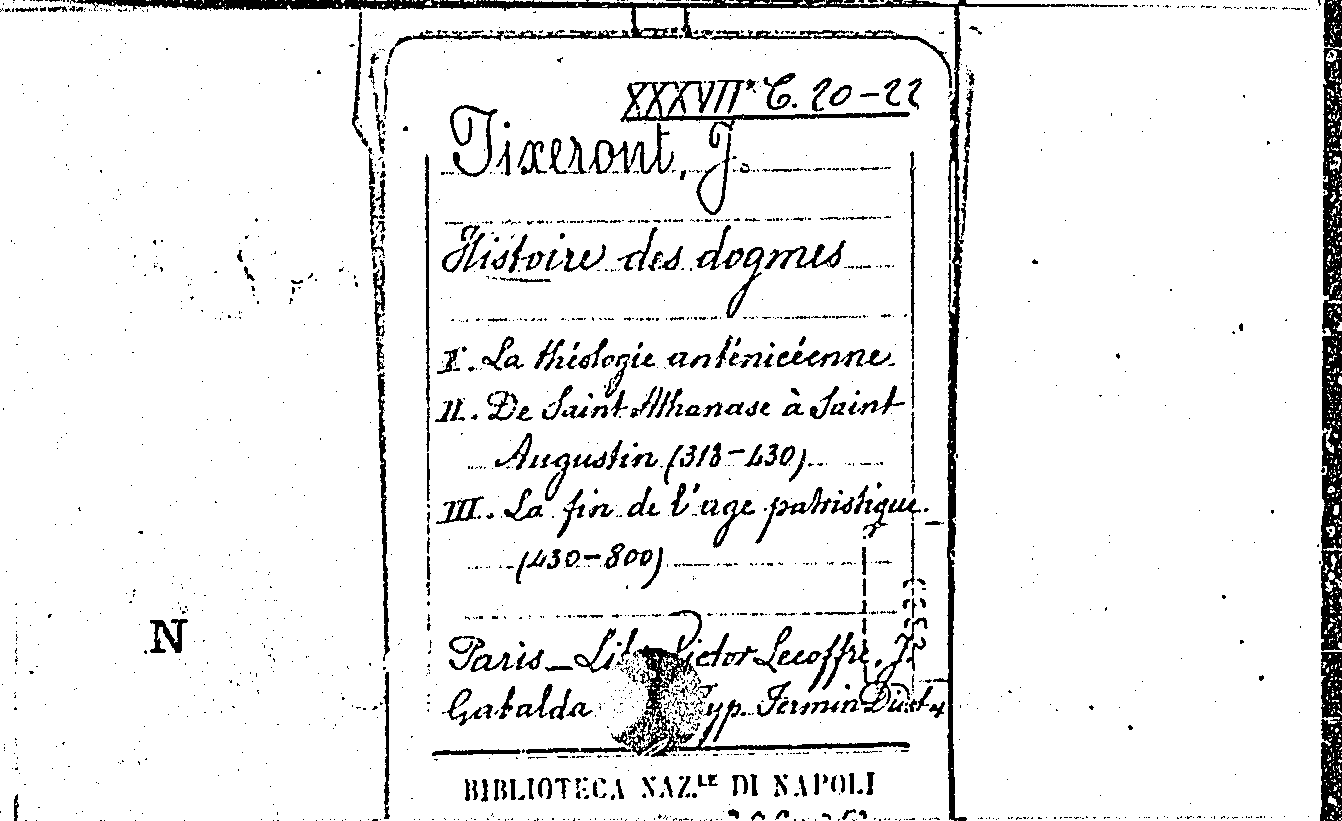 XXXVII* C. 20-22
Tixeront, J.
Histoire des dogmes
I. La théologie anténicéenne.
II. De Saint Athanase à Saint
Augustin (318-430)
III. La fin de l'age patristique.
(430-800)
Paris - Victor Lecoffre, J.
Gabalda Typ. Firmin Didot
N
BIBLIOTECA NAZ.LE DI NAPOLI